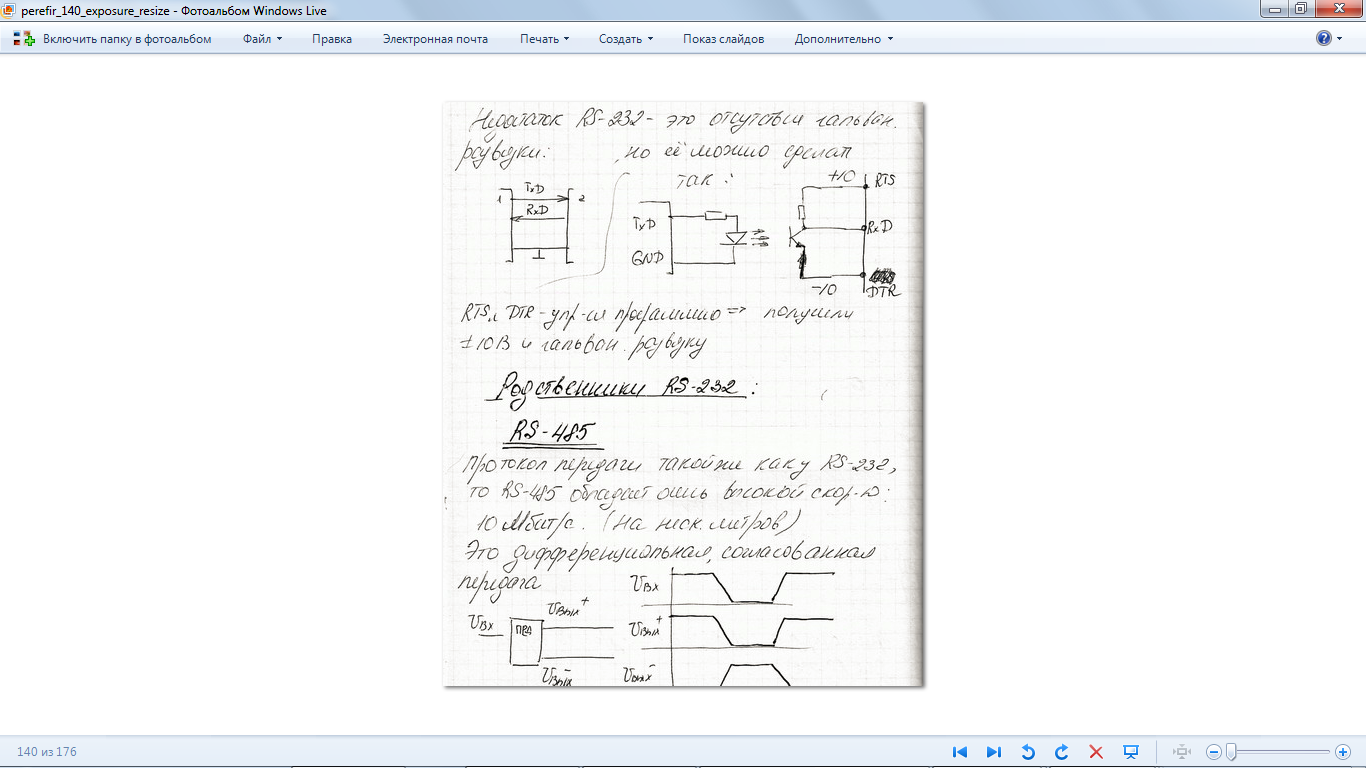 perefir_140_exposure_resize - Фотоальбом Windows Live
Включить папку в фотоальбом Файл Правка Электронная почта Печать Создать Показ слайдов Дополнительно
Недостаток RS-232 - это отсутствие гальван.
развязки: , но её можно сделать
так:
TxD
1 2
RxD
TxD
GND
+10 RTS
RxD
-10 DTR
RTS и DTR - упр-ся программно => получили
±10В и гальван. развязку
Родственники RS-232:
RS-485
Протокол передачи такой же как у RS-232,
то RS-485 обладает очень высокой скор-ю:
10 Мбит/с. (на неск. метров)
Это дифференциальная, согласованная
передача
Uвх ПРД Uвых+
Uвых-
Uвх
Uвых+
Uвых-
140 из 176